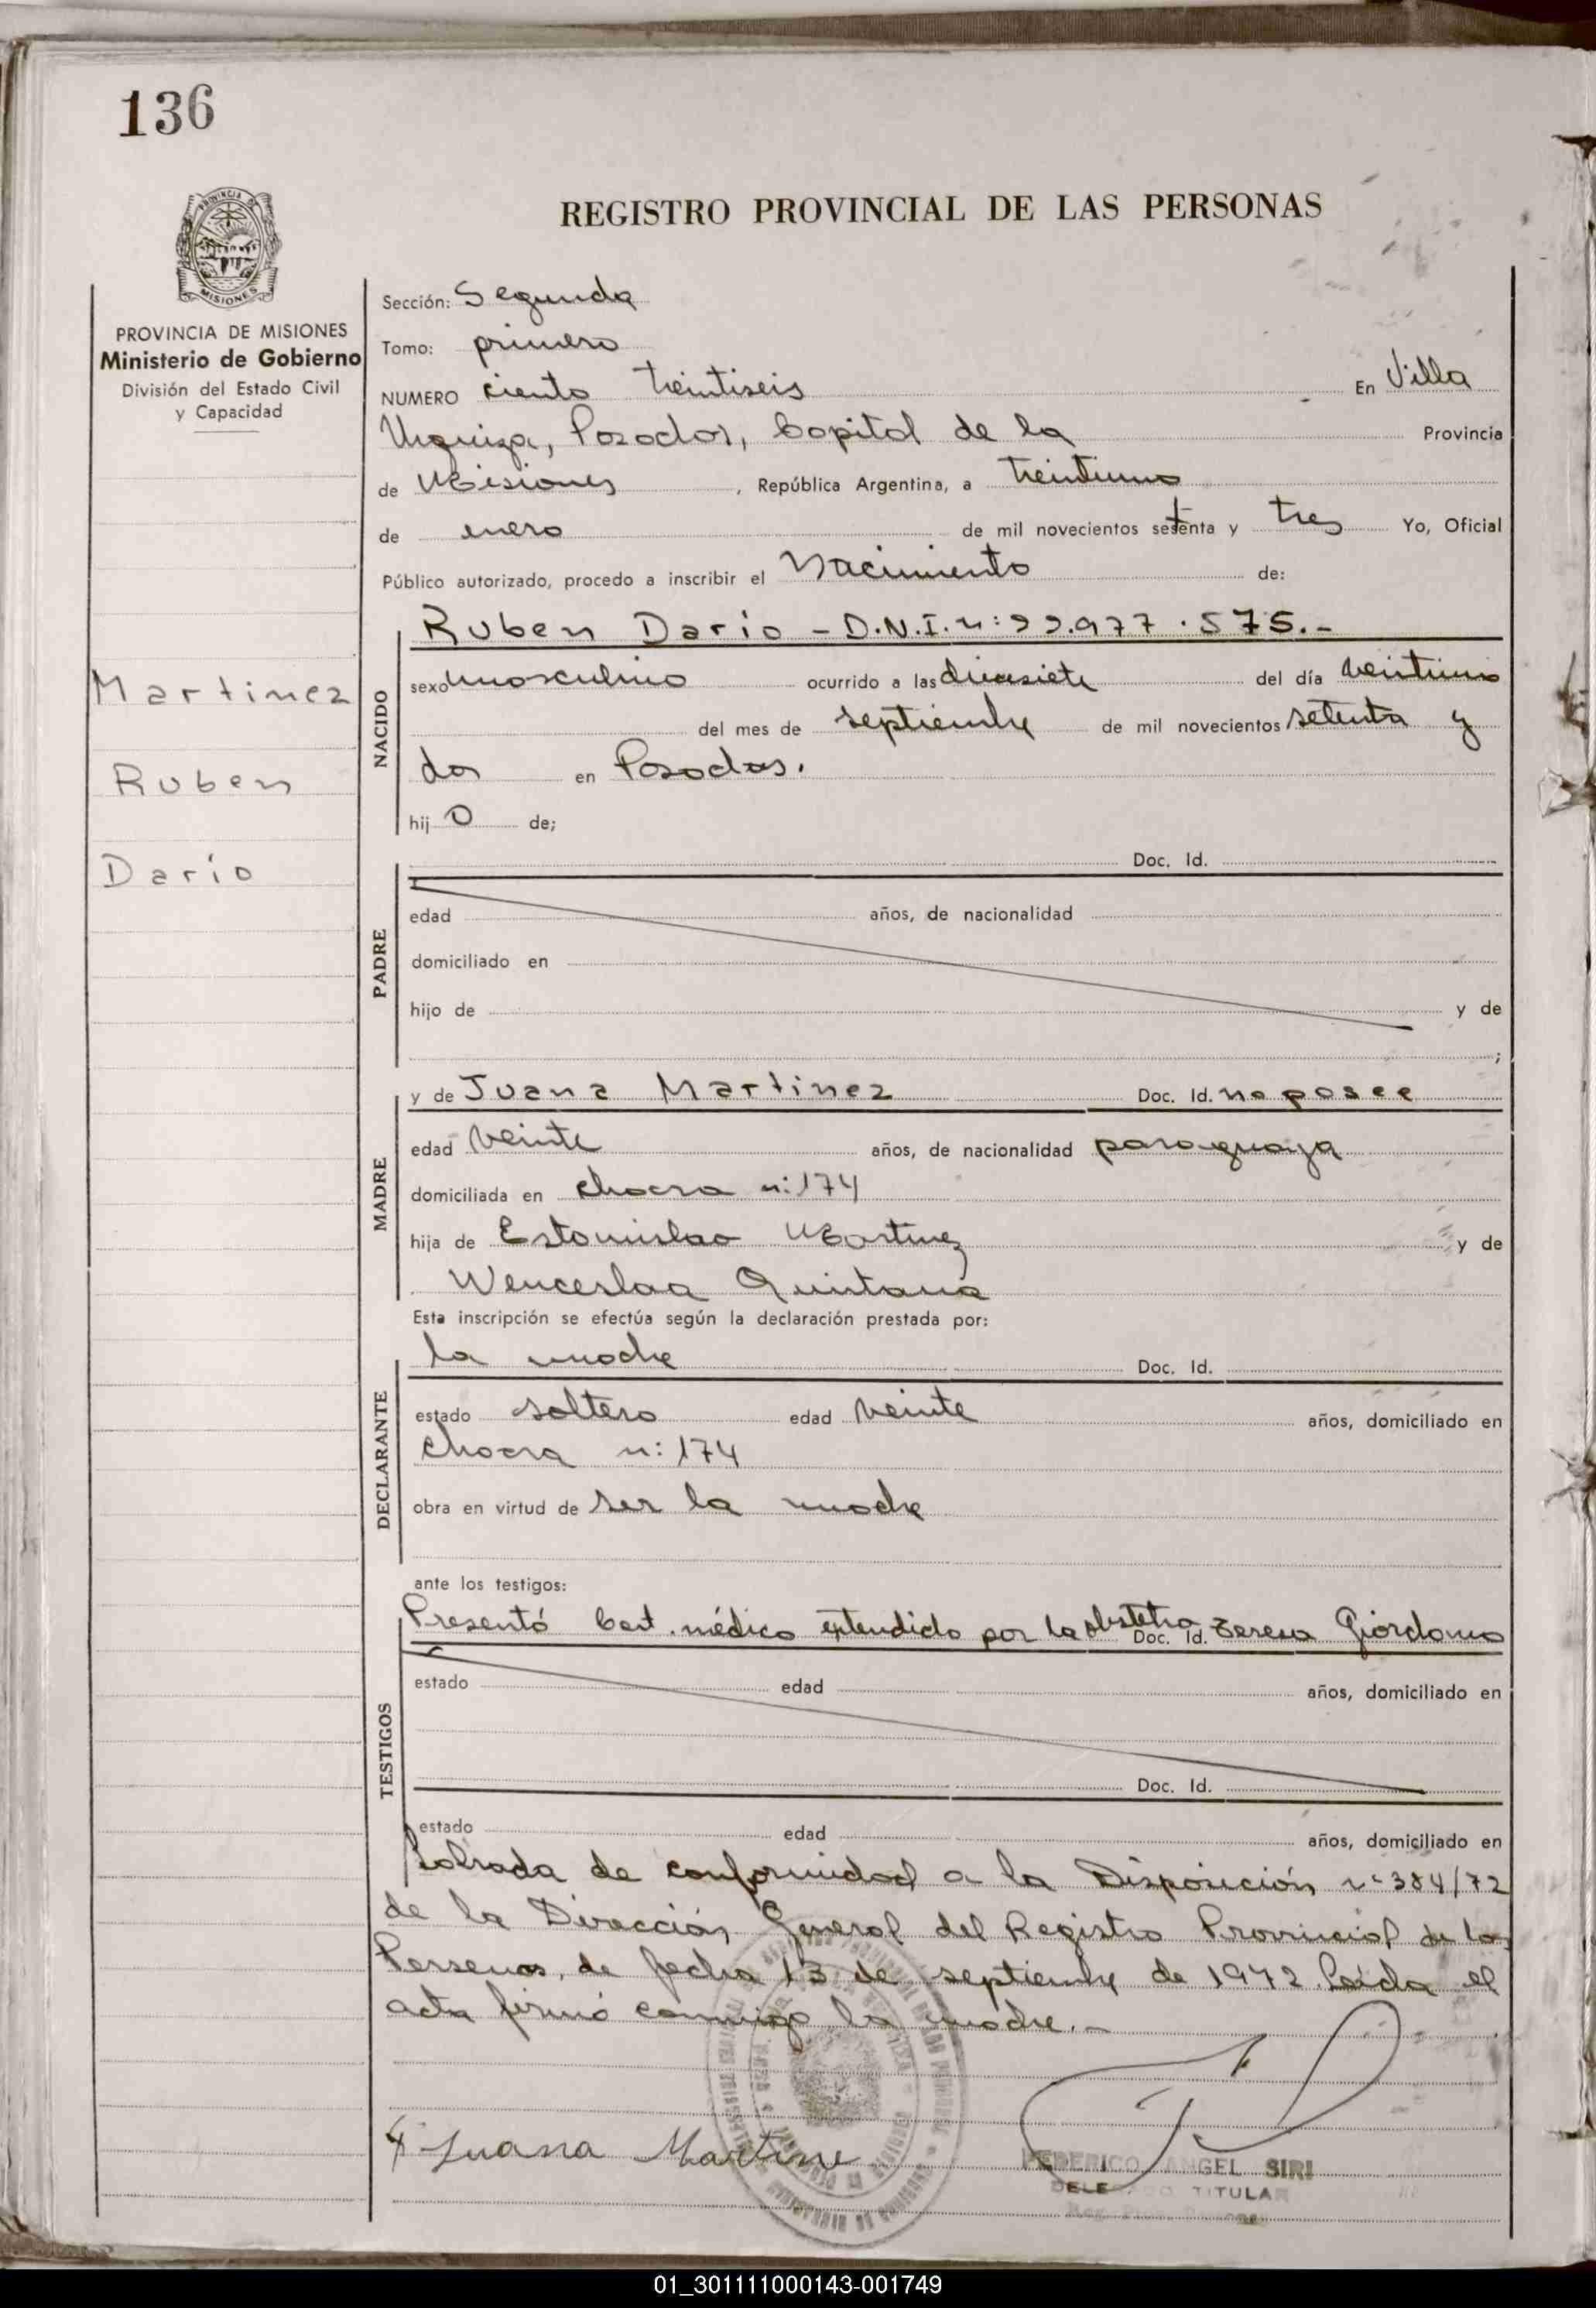 136
PROVINCIA DE
MISIONES
REGISTRO PROVINCIAL DE LAS PERSONAS
PROVINCIA DE MISIONES
Ministerio de Gobierno
División del Estado Civil
y Capacidad
Sección: Segunda
Tomo: primero
NUMERO ciento treintiseis En Villa
Urquiza, Posadas, Capital de la Provincia
de Misiones, República Argentina, a treintiuno
de enero de mil novecientos setenta y tres Yo, Oficial
Público autorizado, procedo a inscribir el Nacimiento de:
Martinez
Ruben
Dario
NACIDO
Ruben Dario - D.N.I. n: 22.977.575.-
sexo masculino ocurrido a las diecisiete del día veintiuno
del mes de septiembre de mil novecientos setenta y
dos en Posadas.
hijo de;
PADRE
Doc. Id.
edad años, de nacionalidad
domiciliado en
hijo de y de
;
MADRE
y de Juana Martinez Doc. Id. no posee
edad veinte años, de nacionalidad paraguaya
domiciliada en chacra n: 174
hija de Estanislao Martinez y de
Wenceslaa Quintana
Esta inscripción se efectúa según la declaración prestada por:
DECLARANTE
la madre Doc. Id.
estado soltera edad veinte años, domiciliado en
chacra n: 174
obra en virtud de ser la madre
ante los testigos:
TESTIGOS
Presentó Cert. médico extendido por la obstetra Doc. Id. Teresa Giordano
estado edad años, domiciliado en
Doc. Id.
estado edad años, domiciliado en
Labrada de conformidad a la Disposición n° 384/72
de la Dirección General del Registro Provincial de las
Personas, de fecha 13 de septiembre de 1972. Leída el
acta firmó conmigo la madre.-
Juana Martine
FEDERICO ANGEL SIRI
TITULAR
01_301111000143-001749